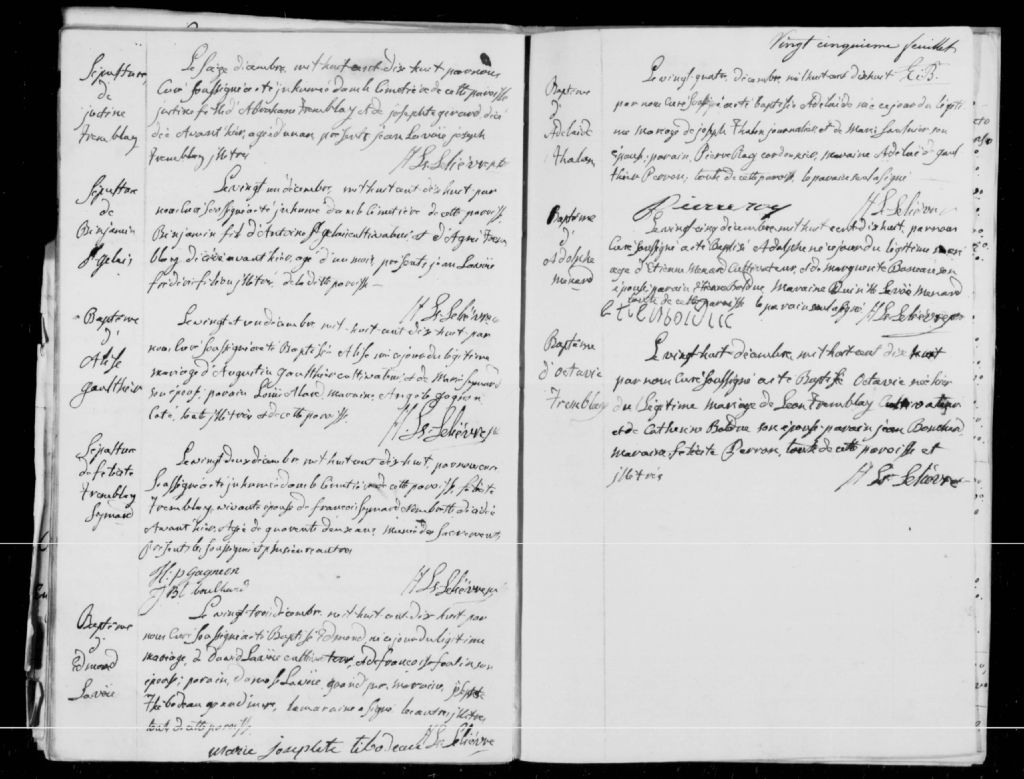 Sépulture
de
justine
Tremblay
Le seize décembre, mil huit cent dix huit par nous
Curé soussigné a été inhumée dans le cimetière de cette paroisse
justine fille d'Abraham Tremblay et de josephte gerard décé
dée avant hier, agée d'un an, présents jean Lavoie joseph
Tremblay illetrés
Ls Lelièvre ptre
Sépulture
de
Binjamin
St gelais
Le vingt un décembre, mil huit cent dix huit par
nous Curé soussigné a été inhumé dans le Cimetière de cette paroisse
Binjamin fils d'Antoine St gelais cultivateur et d'Agnes Trem
blay décédé avant hier, agé d'un mois, présents, jean Lavoie
illetrés, de la dite paroisse
Ls Lelièvre
Baptême
d'
Alise
Gaulthier
Le vingt et un décembre mil huit cent dix huit par
nous Curé soussigné a été Baptisée Alise née ce jour du légitime
mariage d'Augustin Gaulthier cultivateur et de Marie Symard
son épouse, parain Louis Alard, maraine, Angele Gagnon
tous illetrés et de cette paroisse
Ls Lelièvre ptre
Sépulture
de félicité
Tremblay
Symard
Le vingt deux décembre mil huit cent dix huit, par nous curé
soussigné a été inhumée dans le Cimetière de cette paroisse félicité
Tremblay, vivante épouse de françois Symard décédée
avant hier, agée de quarente deux ans, munie des Sacrements,
présents les soussignés et plusieurs autres
H: p Gagnon
J Bt boulliard
Ls Lelièvre ptre
Baptême
d'
Edmond
Lavoie
Le vingt trois décembre mil huit cent dix huit par
nous Curé soussigné a été Baptisé Edmond, né ce jour du légitime
mariage, de David Lavoie cultivateur, et de françoise fortin son
épouse; parain, Lavoie, grand père, maraine, josephte
Thibodeau grand mère, la maraine a signé les autres illetrés,
tous de cette paroisse.
marie josephte tibodeau Ls Lelièvre
Vingt cinquieme feuillet
Baptême
d'
Adelaïde
Thalon
Le vingt quatre, décembre mil huit cent dix huit
par nous Curé soussigné a été baptisée Adelaïde née ce jour du légiti
me mariage de joseph Thalon journalier, et de Marie Saulnier son
épouse: parain, Pierre Roy cordonnier, maraine Adelaide gaul
thier Pierron, tous de cette paroisse le parain seul a signé
Pierre roy
Ls Lelièvre
Baptême
d'
Adolphe
Menard
Le vingt cinq décembre mil huit cent dix huit, par nous
Curé soussigné a été Baptisé Adolphe né ce jour du légitime mari
age d'Etienne Menard Cultivateur, et de Margueritte son
épouse, parain Etienne Bolduc, Maraine Menard
tous de cette paroisse le parain seul a signé Ls Lelièvre ptre
Baptême
d'octavie
Tremblay
Le vingt huit décembre, mil huit cent dix huit
par nous Curé soussigné a été Baptisée Octavie née hier
du légitime mariage de Leon Tremblay Cultivateur
et de Catherine Bolduc son épouse: parain jean Bouchard
maraine, félicité Pierron, tous de cette paroisse et
illetrés
Ls Lelièvre